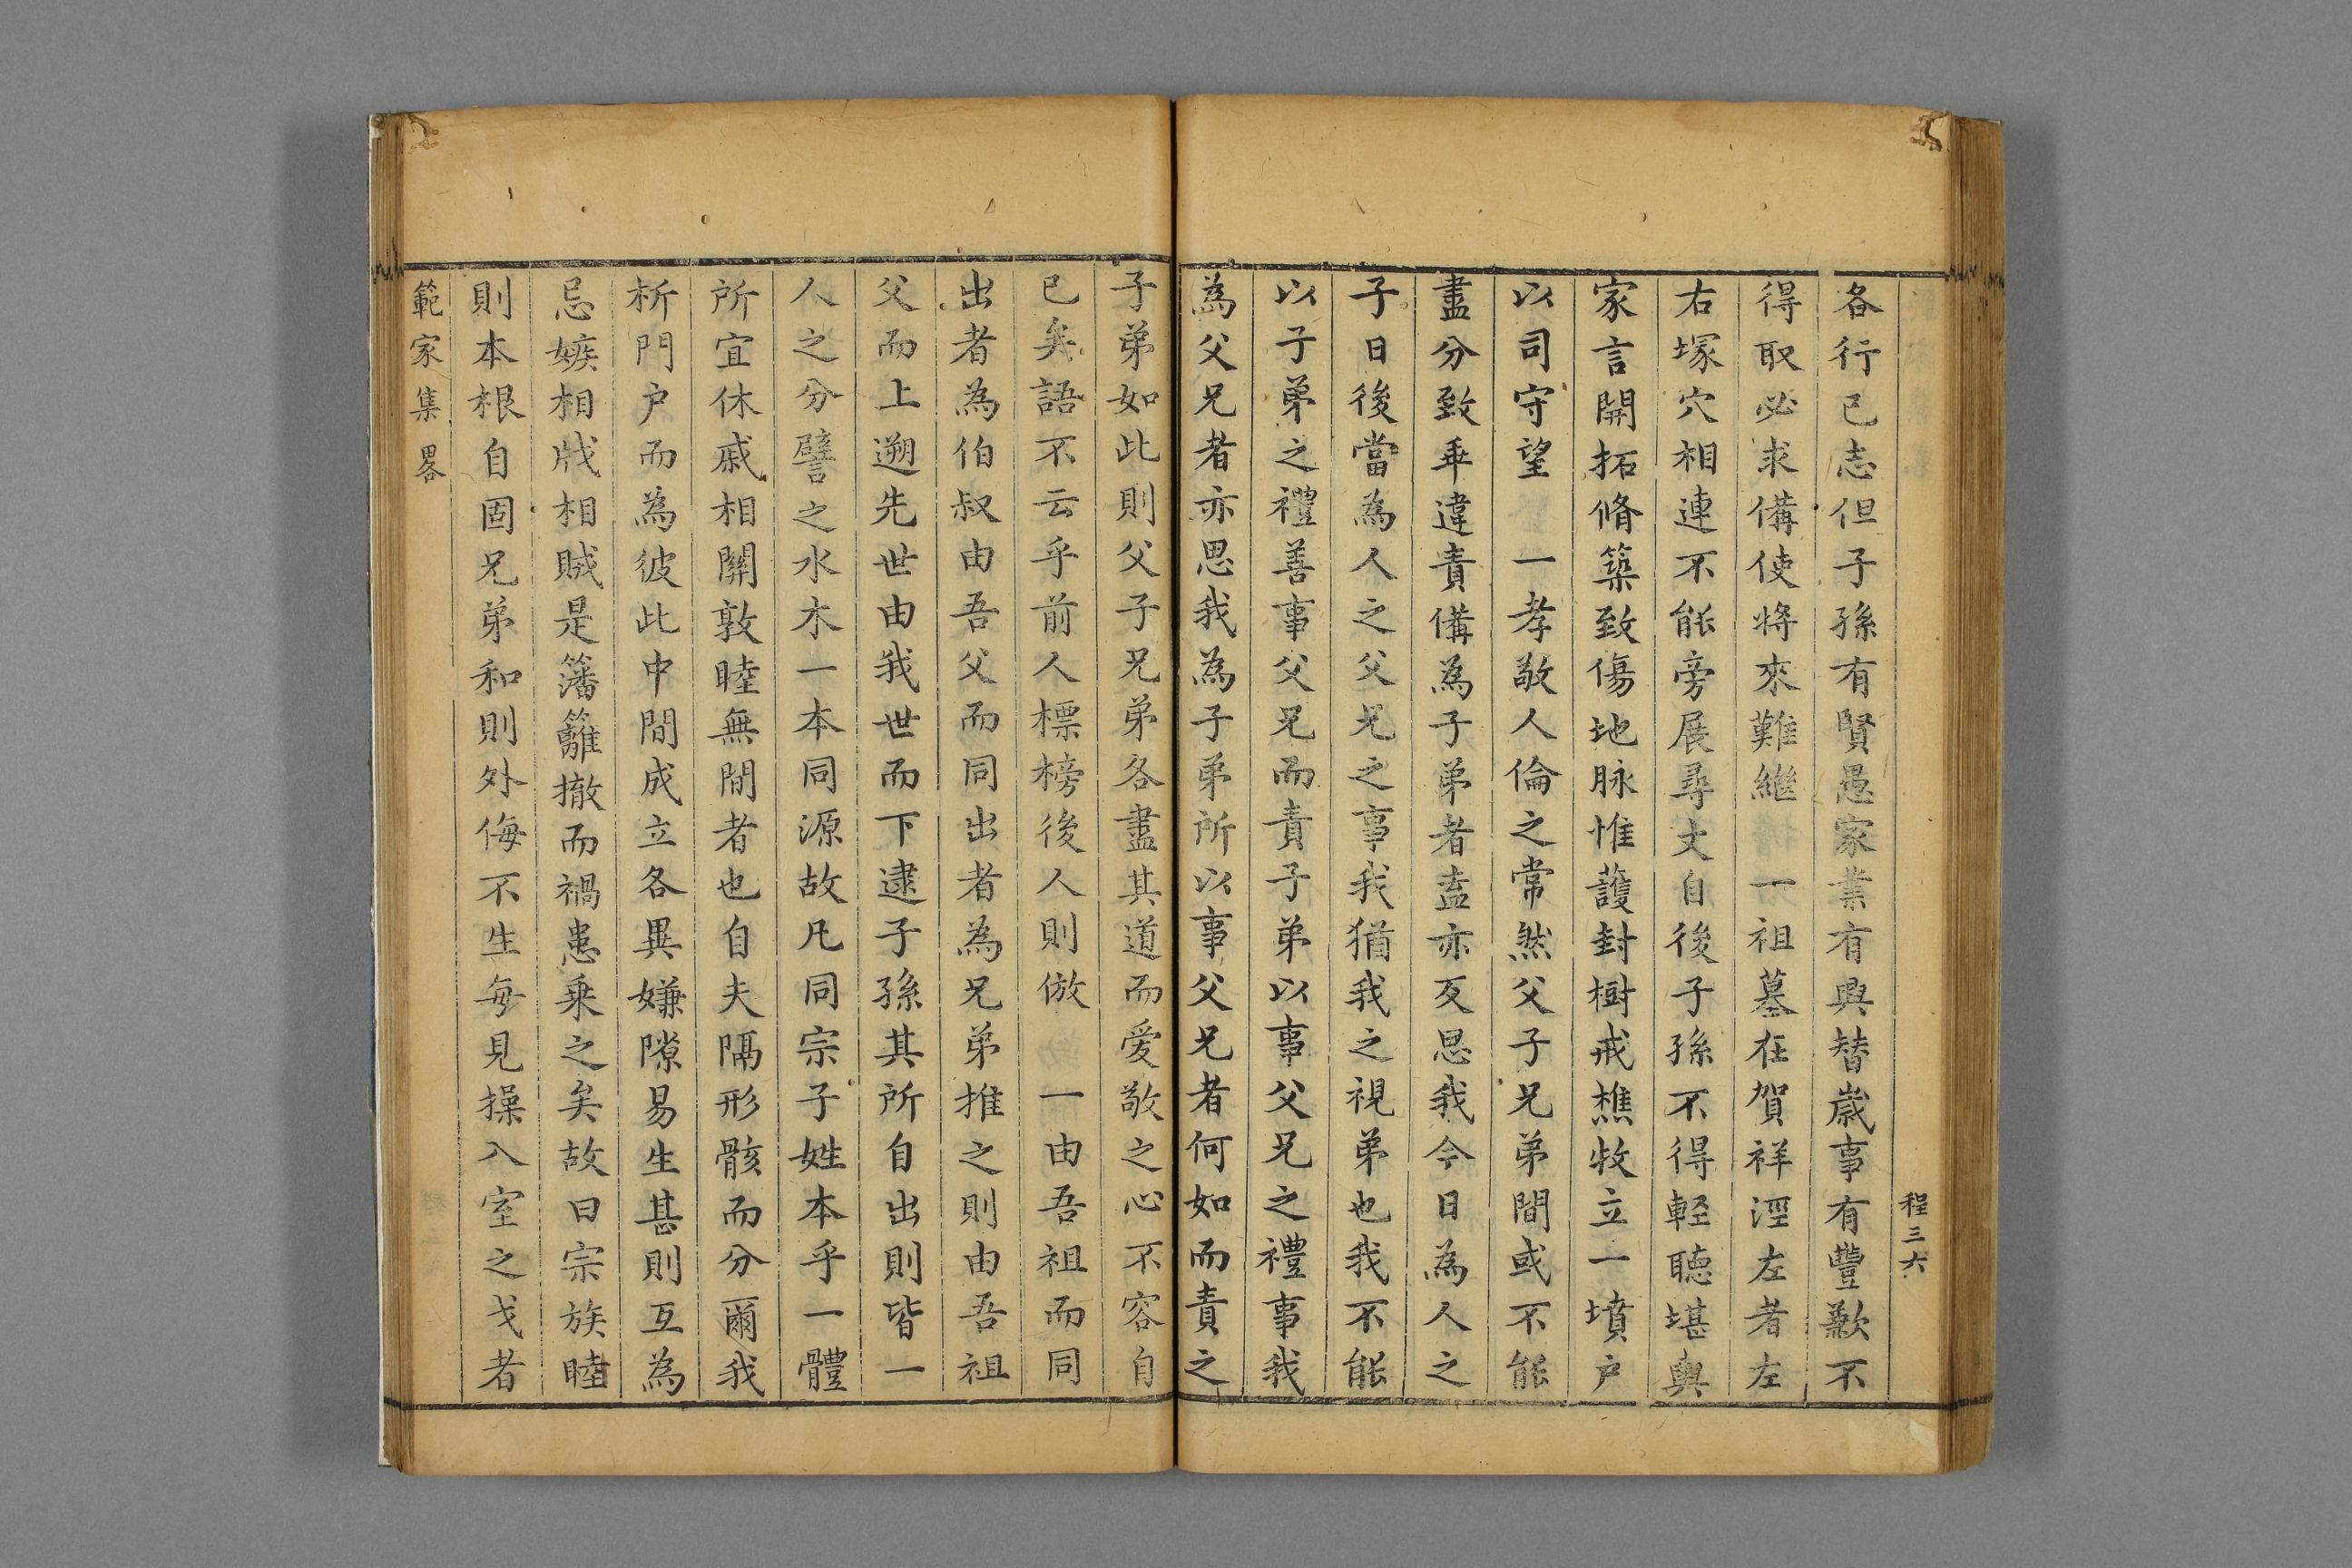 程三六
各行已志但子孫有賢愚家業有興替歲事有豐歉不
得取必求備使將來難繼　一祖墓在賀祥涇左者左
右塚穴相連不能旁展尋丈自後子孫不得輕聽堪輿
家言開拓脩築致傷地脉惟護封樹戒樵牧立一墳户
以司守望　一孝敬人倫之常然父子兄弟間或不能
盡分致乖違責備為子弟者盍亦反思我今日為人之
子日後當為人之父兄之事我猶我之視弟也我不能
以子弟之禮善事父兄而責子弟以事父兄之禮事我
為父兄者亦思我為子弟所以事父兄者何如而責之
子弟如此則父子兄弟各盡其道而愛敬之心不容自
已矣語不云乎前人標榜後人則倣　一由吾祖而同
出者為伯叔由吾父而同出者為兄弟推之則由吾祖
父而上遡先世由我世而下逮子孫其所自出則皆一
人之分譬之水木一本同源故凡同宗子姓本乎一體
所宜休戚相關敦睦無間者也自夫隔形骸而分爾我
析門户而為彼此中間成立各異嫌隙易生甚則互為
忌嫉相戕相賊是籓籬撤而禍患乗之矣故曰宗族睦
則本根自固兄弟和則外侮不生每見操入室之戈者
範家集畧